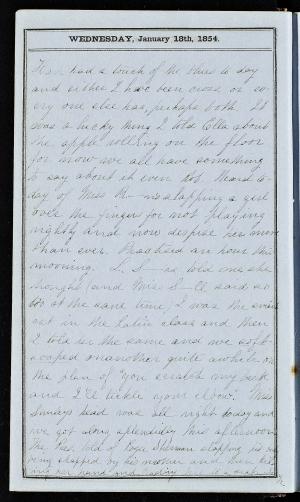 WEDNESDAY, January 18th, 1854.
had a touch of the blues to day
and either I have been cross or ev
ery one else has, perhaps both. It
was a lucky thing I told Ella about
the apple rolling on the floor
for now we all have something
to say about it even Heard to
day of Miss R slapping a girl
over the fingers for not playing
rightly and now despise her more
than ever. Practised an hour this
morning. L. S told me she
thought (and Miss S ll said so
too at the same time) I was the
est in the Latin class and then
I told her the same and we soft
soaped one another quite awhile on
the plan of "you scratch my back
and I'll tickle your elbow". Miss
head was all right today and
we got along splendidly this afternoon
The Pres. told of Roger Sherman stopping his
being slapped by his mother and then
her hand and